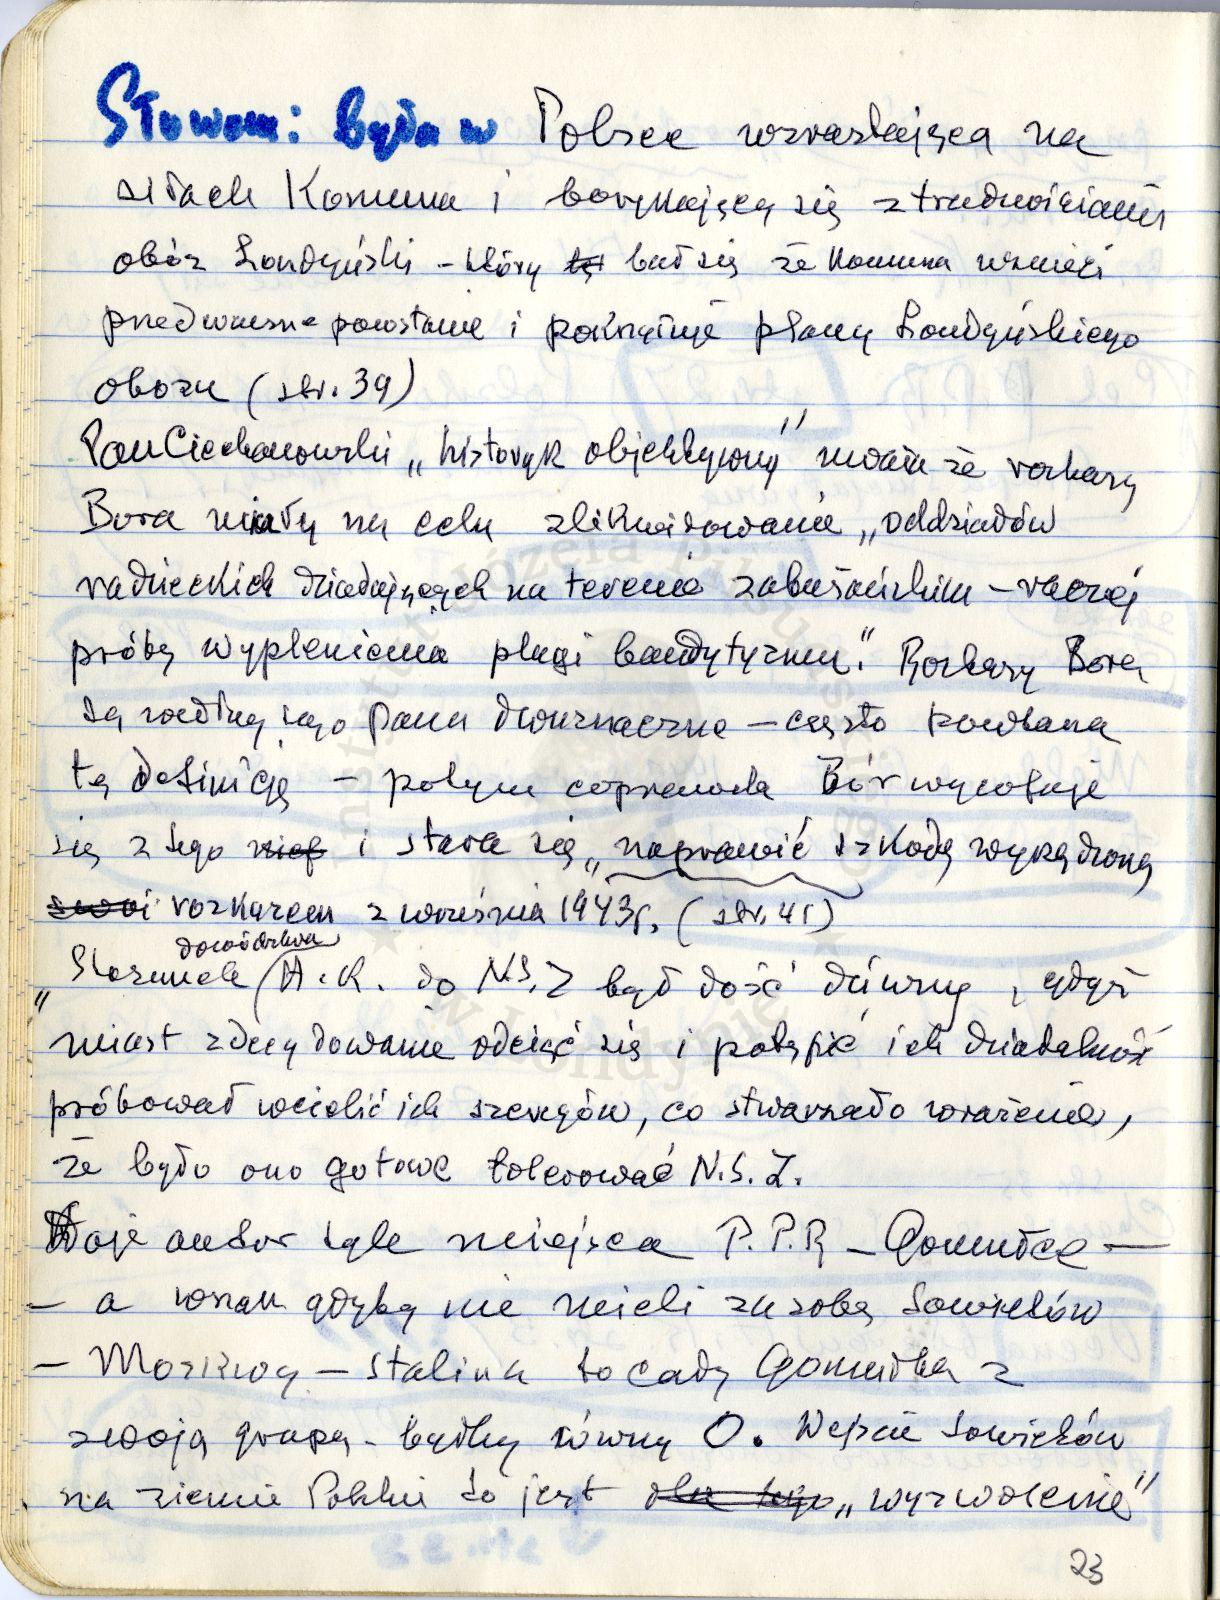 Słowem: Była w Polsce wzrastająca na
siłach Komuna i borykający się z trudnościami
obóz Londyński - który bał się że Komuna wznieci
przedwczesne powstanie i pokrzyżuje plany Londyńskiego
obozu (str. 39)
Pan Ciechanowski „historyk objektywny" uważa że rozkazy
Bora miały na celu zlikwidowanie „oddziałów
radzieckich działających na terenie zabużańskim - raczej
próbę wyplenienia plagi bandytyzmu." Rozkazy Bora
są według tego Pana dwuznaczne - często powtarza
tą definicję - potym coprawda Bór wycofuje
się z tego i stara się „naprawić szkodę wyrządzoną
rozkazem z września 1943r. (str. 41)
dowództwa
„Stosunek A.K. do N.S.Z był dość dziwny, gdyż
miast zdecydowanie odciąć się i potępić ich działalność
próbował wcielić ich szeregów, co stwarzało wrażenie,
że było ono gotowe tolerować N.S.Z.
Daje autor tyle miejsca P.P.R - Gomułce -
- a wszak gdyby nie mieli za sobą Sowietów
- Moskwy - Stalina to cały Gomułka z
swoją grupą - byłby równy O. Wejście Sowietów
na ziemie Polski to jest „wyzwolenie"
23
Instytut Józefa Piłsudskiego
w Londynie